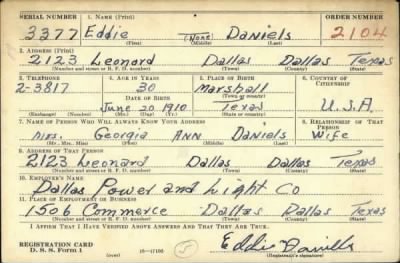 SERIAL NUMBER 1. NAME (Print) ORDER NUMBER
3377 Eddie (None) Daniels 2104
(First) (Middle) (Last)
2. ADDRESS (Print)
2123 Leonard Dallas Dallas Texas
(Number and street or R. F. D. number) (Town) (County) (State)
3. TELEPHONE 4. AGE IN YEARS 5. PLACE OF BIRTH 6. COUNTRY OF CITIZENSHIP
2-3817 30 Marshall
(Town or county)
DATE OF BIRTH
June 20 1910 Texas U.S.A
(Exchange) (Number) (Mo.) (Day) (Yr.) (State or country)
7. NAME OF PERSON WHO WILL ALWAYS KNOW YOUR ADDRESS 8. RELATIONSHIP OF THAT PERSON
Mrs. Georgia ANN Daniels Wife
(Mr., Mrs., Miss) (First) (Middle) (Last)
9. ADDRESS OF THAT PERSON
2123 Leonard Dallas Dallas Texas
(Number and street or R. F. D. number) (Town) (County) (State)
10. EMPLOYER'S NAME
Dallas Power and Light Co
11. PLACE OF EMPLOYMENT OR BUSINESS
1506 Commerce Dallas Dallas Texas
(Number and street or R. F. D. number) (Town) (County) (State)
I AFFIRM THAT I HAVE VERIFIED ABOVE ANSWERS AND THAT THEY ARE TRUE.
REGISTRATION CARD
D. S. S. Form 1 (over) 16—17105 5 Eddie Daniels
(Registrant's signature)